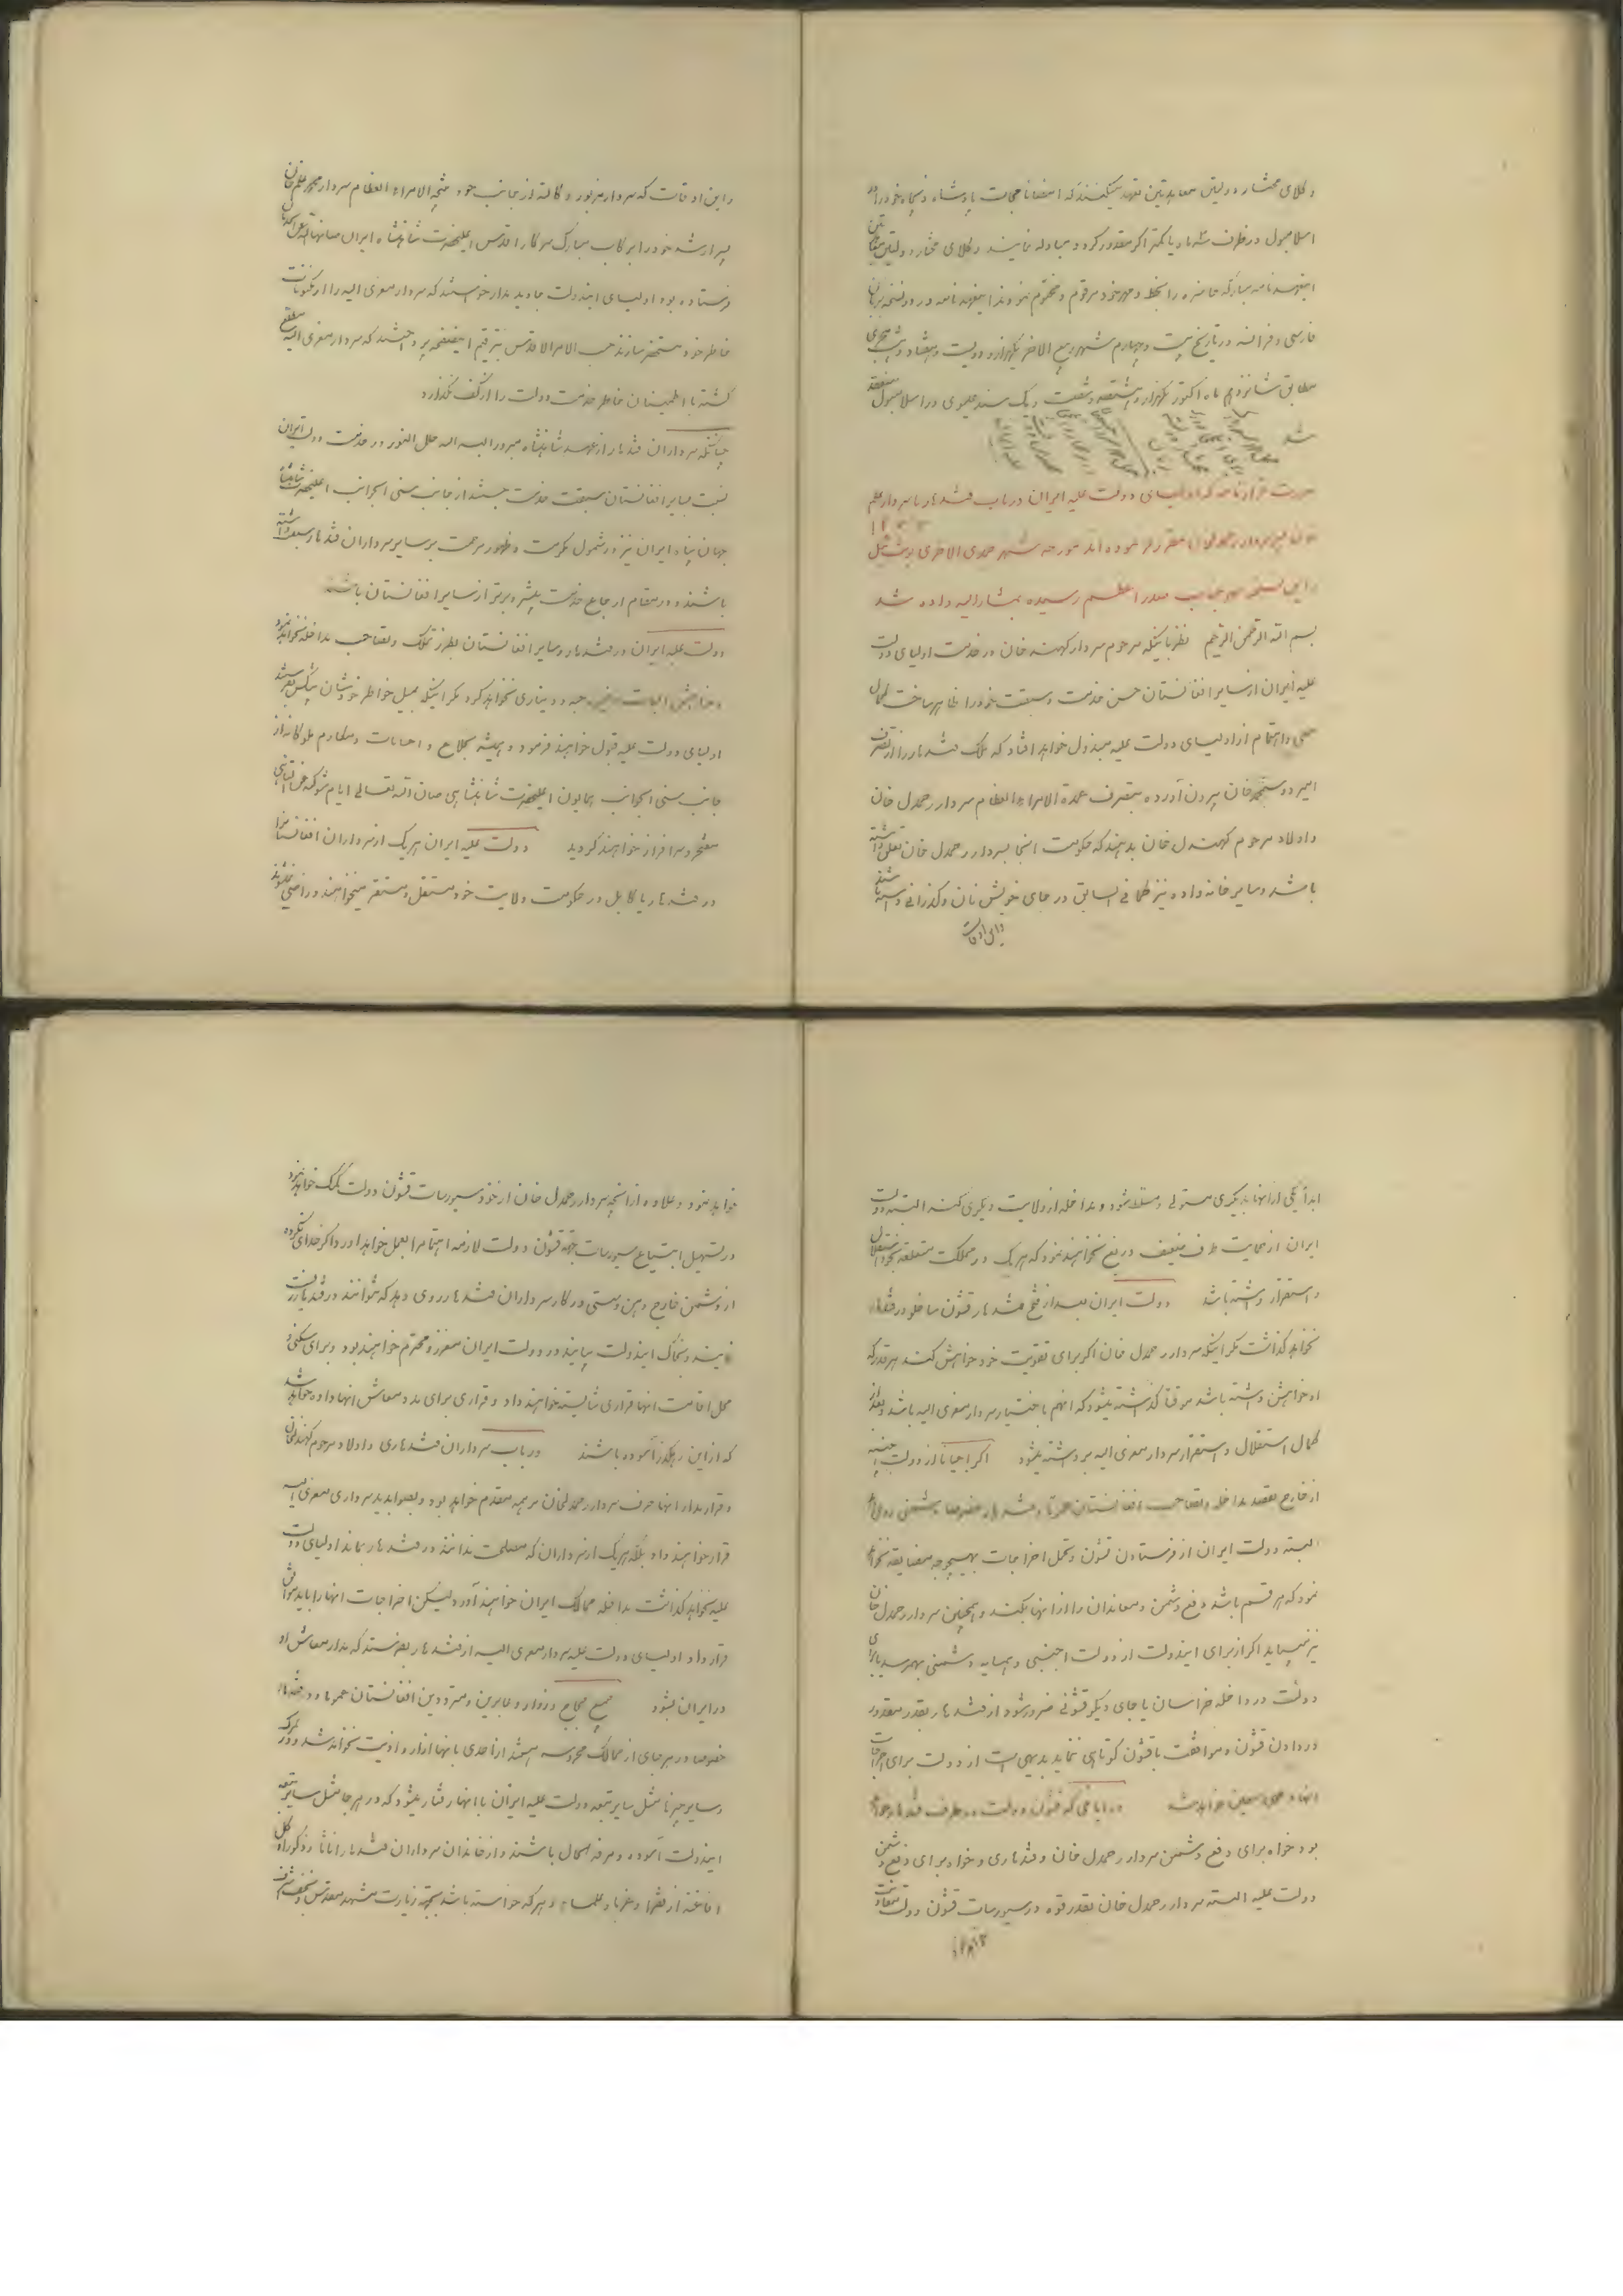 وکلای مختار دولتین معاهدتین تعهد میکنند که امضانامجات پادشاه ذیجاه خود را در
اسلامبول در ظرف سه ماه یا کمتر اگر مقدور گردد مبادله نمایند وکلای مختار دولتین
اینعهدنامه مبارکه حاضره را بخط و مهر خود مرقوم و مختوم نمودند اینعهدنامه در دو نسخه بزبان
فارسی و فرانسه در تاریخ بیست و چهارم شهر ربیع الاخر یکهزار و دویست و هفتاد و هجری
مطابق شانزدهم ماه اکتوبر یکهزار و هشتصد و شصت و یک سنه عیسوی در اسلامبول منعقد
شد
صورت قرارنامه که اولیای دولت علیه ایران در باب قندهار با سردار علم
خان پسر سردار رحمدلخان مقرر فرموده اند مورخه شهر جمدی الاخری
و این نسخه بمهر جناب صدر اعظم رسیده بمشارالیه داده شد
بسم الله الرحمن الرحیم نظر باینکه مرحوم سردار کهندل خان در خدمت اولیای دولت
علیه ایران از سایر افغانستان حسن خدمت و سبقت خود را ظاهر ساخت کمال
سعی و اهتمام از اولیای دولت علیه مبذول خواهد افتاد که ملک قندهار را از تصرف
امیر دوستمحمد خان بیرون آورده بتصرف عمدة الامراء العظام سردار رحمدل خان
و اولاد مرحوم کهندل خان بدهند که حکومت انجا بسردار رحمدل خان تعلق داشته
باشد و سایر خانواده نیز کما فی السابق در جای خویش نان و گذرانی داشته باشند
و این اوقات
و این اوقات که سردار مزبور وکالة از جانب خود نتیجة الامراء العظام سردار محمد علم خان
پسر ارشد خود را برکاب مبارک سرکار اقدس اعلیحضرت شاهنشاه ایران
فرستاده بود اولیای ایندولت جاوید مدار خواستند که سردار معزی الیه را از مکنونات
خاطر خود مستحضر سازند حسب الامر الاقدس بترقیم اینصفحه پرداختند که سردار معزی الیه مطلع
گشته با اطمینان خاطر خدمت دولت را از کف نگذارد
چنانکه سرداران قندهار از عهد شاهنشاه مبرور البسه الله حلل النور در خدمت دولت ایران
نسبت بسایر افغانستان سبقت خدمت جستند از جانب سنی الجوانب اعلیحضرت شاهنشاه
جهان پناه ایران نیز در شمول مکرمت و ظهور مرحمت بر سایر سرداران قندهار سبقت داشته
باشند و در مقام ارجاع خدمت بیشتر و برتر از سایر افغانستان باشند
دولت علیه ایران در قندهار و سایر افغانستان بطرز تملک و تصاحب مداخله نخواهد نمود
و خواهش حبه و دیناری نخواهد کرد مگر اینکه بمیل خواطر خودشان پیشکش بفرستند
اولیای دولت علیه قبول خواهند فرمود و همیشه بخلاع و احسانات و مکارم ملوکانه از
جانب سنی الجوانب همایون اعلیحضرت شاهنشاهی صان الله تعالی ایام شوکته
مفتخر و سرافراز خواهند گردید دولت علیه ایران هر یک از سرداران افغانستان را
در قندهار یا کابل در حکومت ولایت خود مستقل و مستقر میخواهند و راضی نخواهند
ابداً یکی از انها بدیگری مستولی و مسلط شود و مداخله از ولایت دیگری کند البته دولت
ایران از حمایت طرف ضعیف دریغ نخواهند نمود که هر یک در مملکت متعلقه بخود استقلال
و استقرار داشته باشد دولت ایران بعد از فتح قندهار قشون ساخلو در قندهار
نخواهد گذاشت مگر اینکه سردار رحمدل خان اگر برای تقویت خود خواهش کند هر قدر که
او خواهش داشته باشد موقتاً گذاشته میشود که انهم باختیار سردار معزی الیه باشد و بعد از
کمال استقلال و استقرار سردار معزی الیه برداشته میشود اگر احیاناً از دولت اجنبیه
از خارج بقصد مداخله و تصاحب افغانستان عموماً و قندهار خصوصاً دشمنی
البته دولت ایران از فرستادن قشون و تحمل اخراجات بهیچوجه مضایقه نخواهد
نمود که هر قسم باشد دفع دشمن و معاندان را از انها بکند و همچنین سردار رحمدل خان
نیز میباید اگر از برای ایندولت از دولت اجنبی و همسایه دشمنی بهم رسد یا برای
دولت در داخله خراسان یا جای دیگر قشونی ضرور شود از قندهار بقدر مقدور
در دادن قشون و موافقت با قشون کوتاهی ننماید بدیهی است از دولت برای اخراجات
انها وجهی معین خواهد شد در ایامی که قشون دولت در طرف قندهار خواهد
بود خواه برای دفع دشمن سردار رحمدل خان و قندهاری و خواه برای دفع دشمن
دولت علیه البته سردار رحمدل خان بقدر قوه در سیورسات قشون دولت معاونت
خواهد نمود و علاوه از انچه سردار رحمدل خان از خود سیورسات قشون دولت کمک خواهد نمود
در تسهیل ابتیاع سیورسات بجهة قشون دولت لازمه اهتمام را بعمل خواهد اورد و اگر خدای نکرده
از دشمن خارج وهن و سستی در کار سرداران قندهار روی دهد که نتوانند در قندهار زیست
نمایند و بخاک ایندولت بیایند در دولت ایران معزز و محترم خواهند بود و برای سکنی و
محل اقامت انها قراری شایسته خواهند داد و قراری برای مدد معاش انها داده خواهد شد
که از این رهگذر آسوده باشند در باب سرداران قندهاری و اولاد مرحوم کهندلخان
و قرار مدار انها حرف سردار رحمدلخان بر همه مقدم خواهد بود و بصوابدید سرداری معزی الیه
قرار خواهند داد بلکه هر یک از سرداران که مصلحت ندانند در قندهار بماند اولیای دولت
علیه نخواهد گذاشت بداخله ممالک ایران خواهند آورد لیکن اخراجات انها را باید موافق
قرارداد اولیای دولت علیه سردار معزی الیه از قندهار بفرستد که مدار معاش او
در ایران بشود جمیع حجاج و زوار و عابرین و مترددین افغانستان عموماً و قندهار
خصوصاً در هر جای از ممالک محروسه باشند از احدی بانها ازار و اذیت نخواهد شد و در گمرک
و سایر چیزها مثل سایر تبعه دولت علیه ایران با انها رفتار میشود که در هر جا مثل سایر تبعه
ایندولت آسوده و مرفه الحال باشند و از خاندان سرداران قندهار اناثاً و ذکوراً و کل
افاغنه از فقرا و غربا و علماء و هر که خواسته باشد بجهة زیارت مشهد مقدس و نجف اشرف